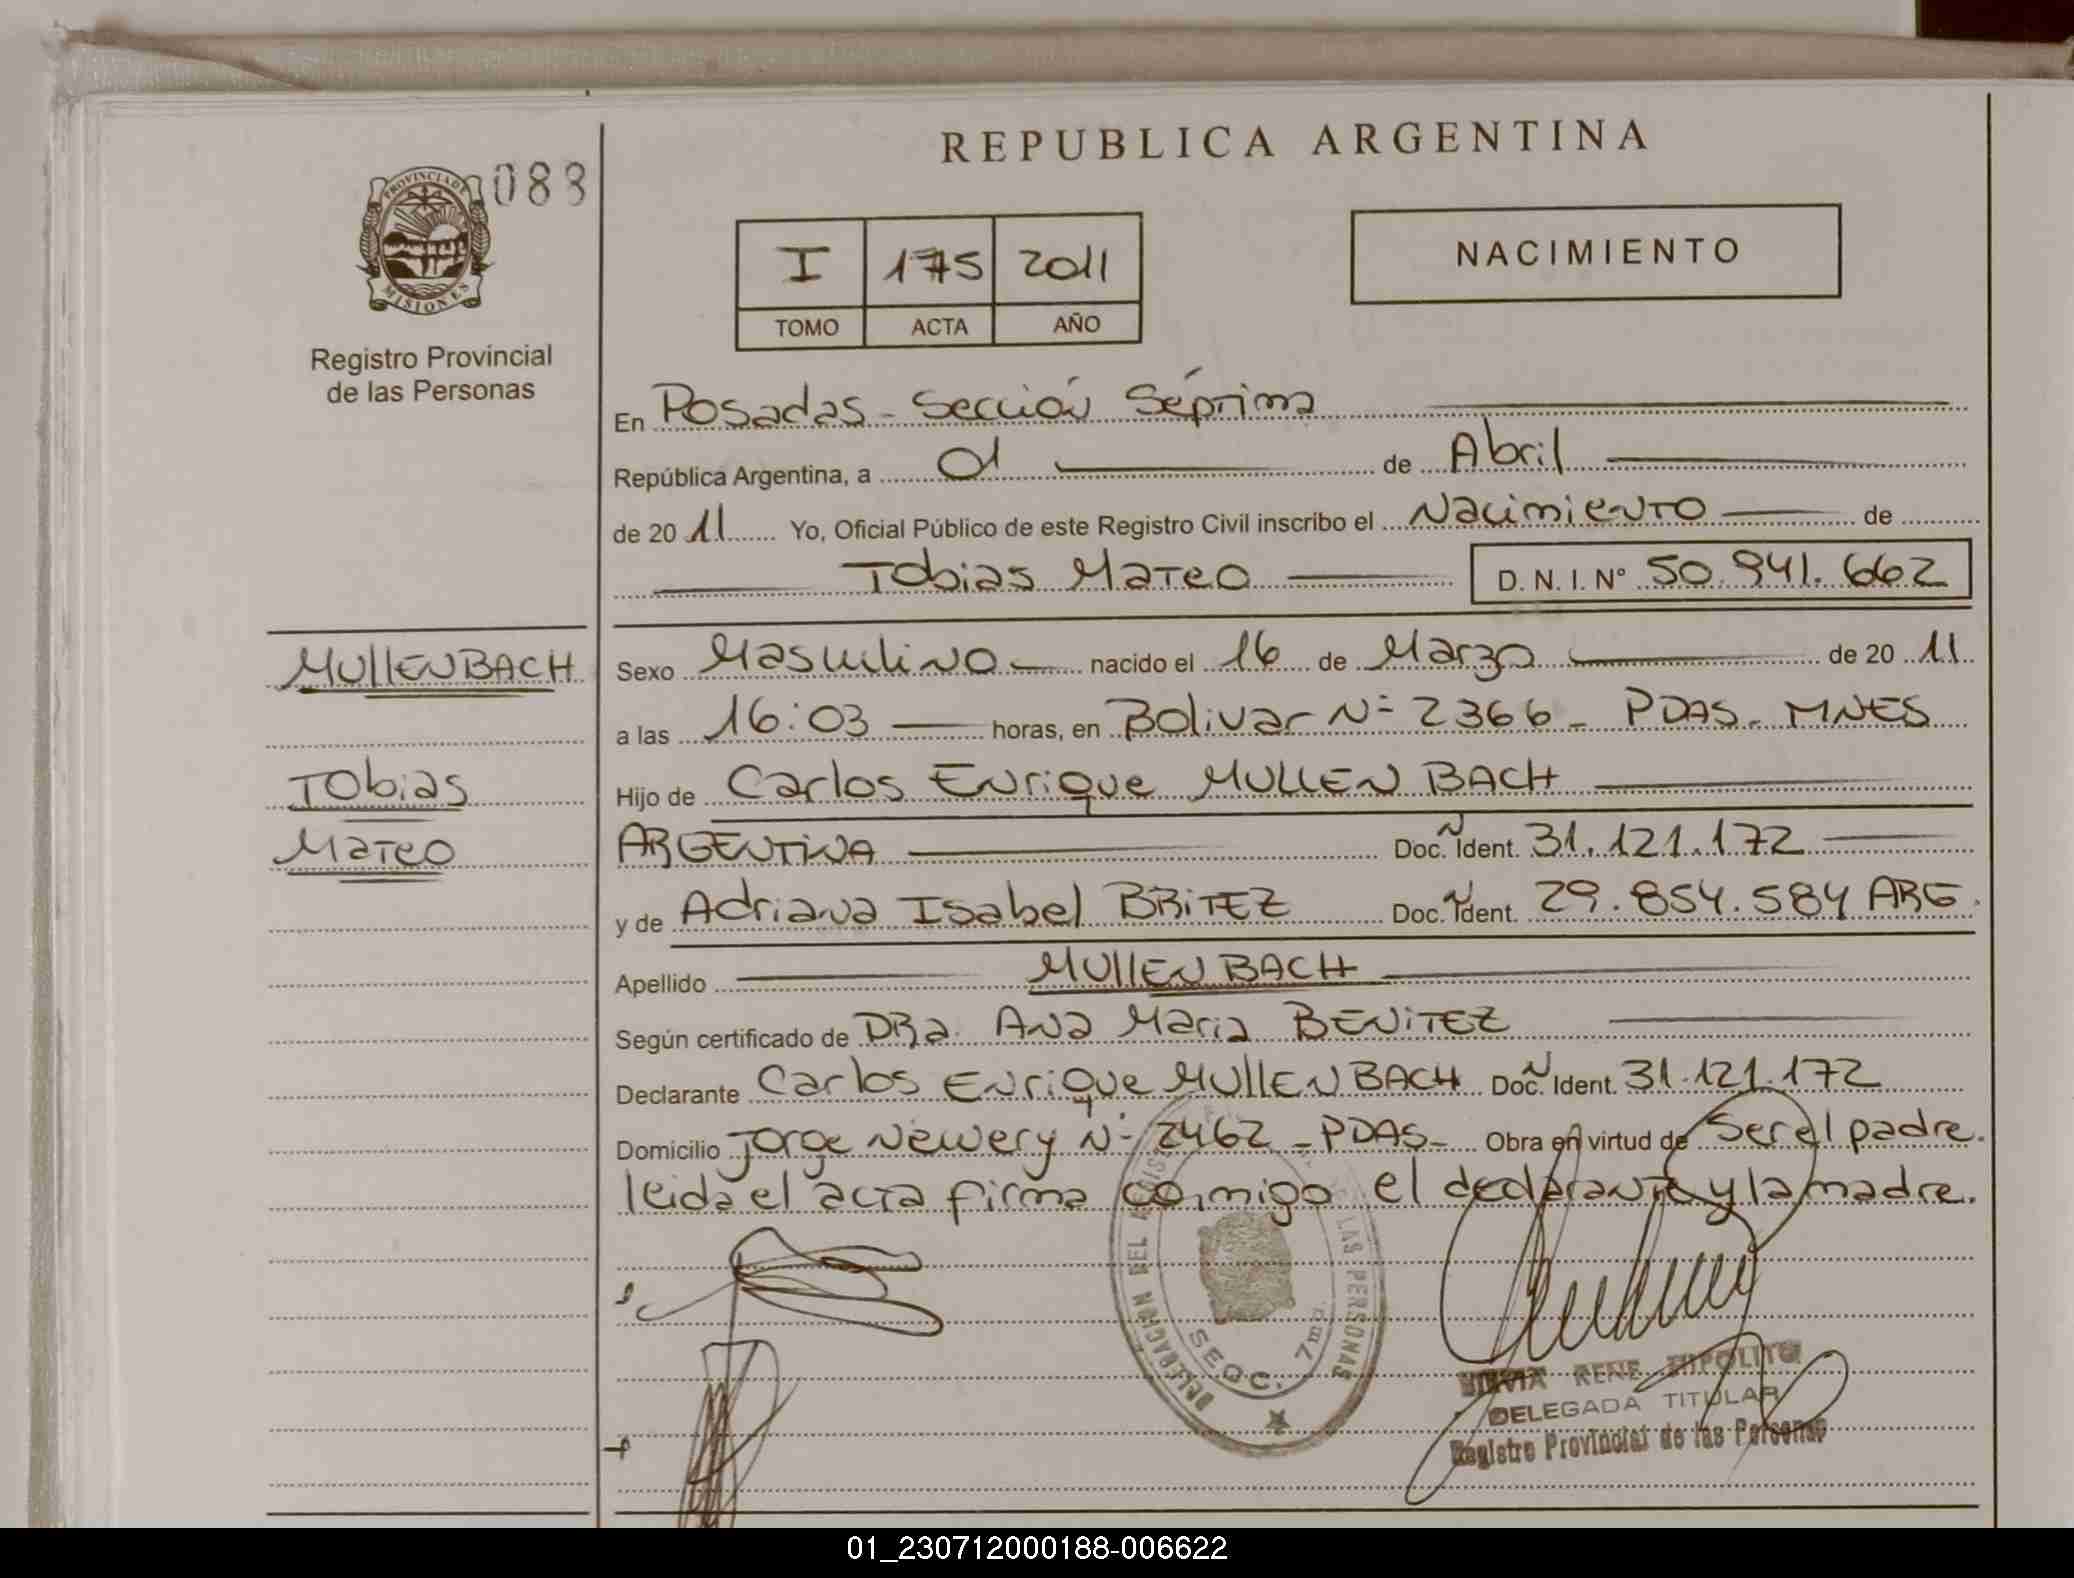 REPUBLICA ARGENTINA
PROVINCIA DE MISIONES
088
Registro Provincial
de las Personas
I 175 2011
TOMO ACTA AÑO
NACIMIENTO
En Posadas - Sección Séptima
República Argentina, a 01 de Abril
de 2011 Yo, Oficial Público de este Registro Civil inscribo el Nacimiento de
Tobias Mateo D. N. I. Nº 50.941.662
MULLENBACH
Tobias
Mateo
Sexo Masculino nacido el 16 de Marzo de 2011
a las 16:03 horas, en Bolivar Nº 2366 - PDAS - MNES
Hijo de Carlos Enrique MULLENBACH
ARGENTINA Doc. Ident. 31.121.172
y de Adriana Isabel BRITEZ Doc. Ident. 29.854.584 ARG.
Apellido MULLENBACH
Según certificado de DRa. Ana Maria BENITEZ
Declarante Carlos Enrique MULLENBACH Doc. Ident. 31.121.172
Domicilio Jorge Newery Nº 2462 - PDAS - Obra en virtud de Ser el padre.
leida el acta firma conmigo el declarante y la madre.
DELEGACION DEL REGISTRO LAS PERSONAS
SECC. 7ma.
RENE HIPOLITO
DELEGADA TITULAR
Registro Provincial de las Personas
01_230712000188-006622